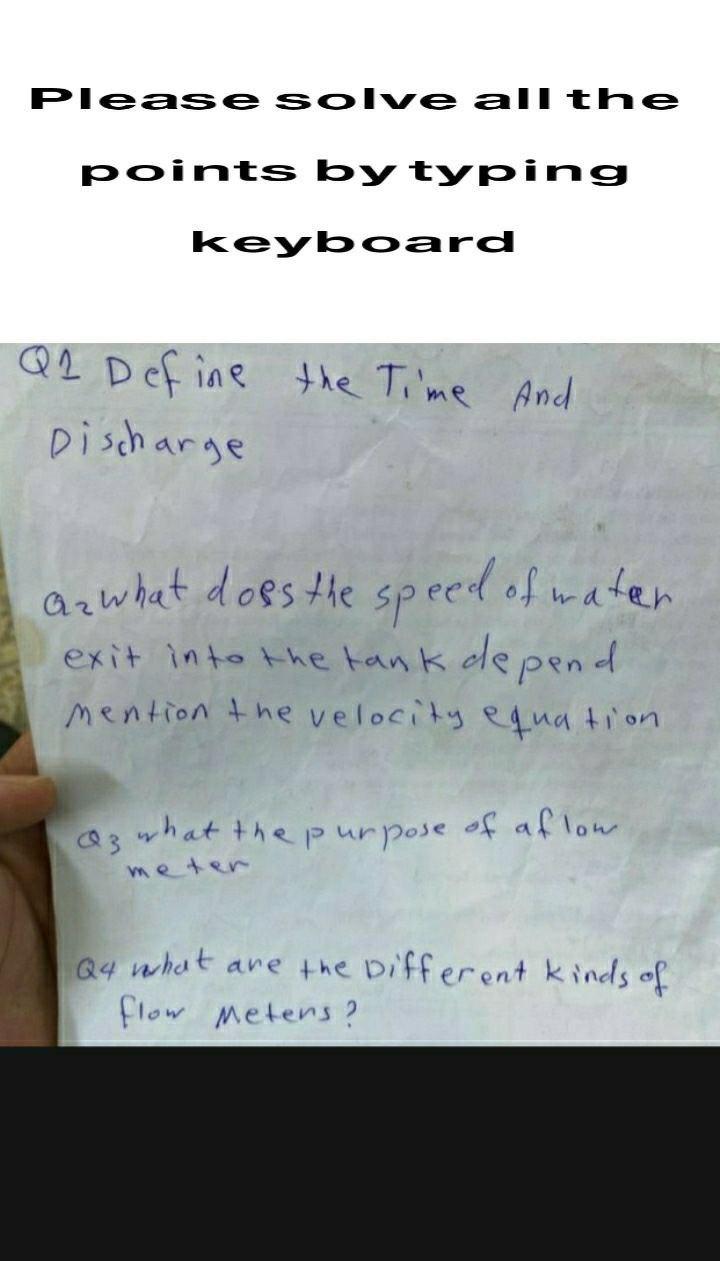 Please solve all the
points by typing
keyboard
Q1 Define the Time And
Discharge
Q2 what does the speed of water
exit into the tank depend
Mention the velocity equation
Q3 what the purpose of a flow
meter
Q4 what are the Different kinds of
flow Meters?